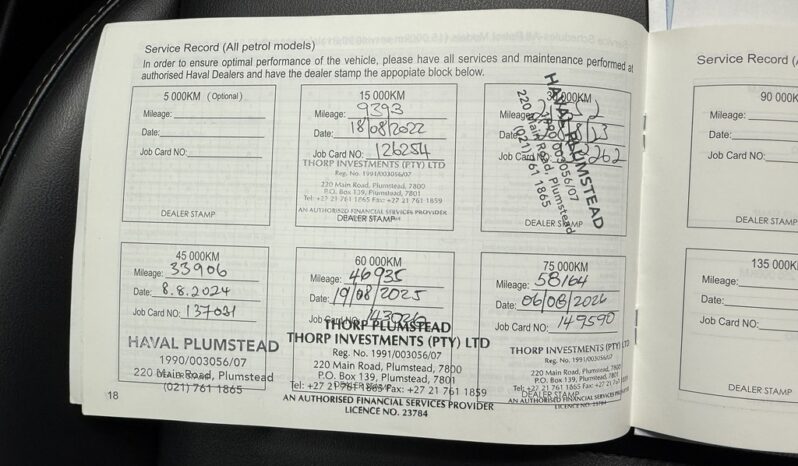 Service Record (All petrol models)
In order to ensure optimal performance of the vehicle, please have all services and maintenance performed at
authorised Haval Dealers and have the dealer stamp the appopiate block below.
5 000KM (Optional)
Mileage:
Date:
Job Card NO:
DEALER STAMP
15 000KM
Mileage: 9393
Date: 18/08/2022
Job Card NO: 126254
THORP INVESTMENTS (PTY) LTD
Reg. No. 1991/003056/07
220 Main Road, Plumstead, 7800
P.O. Box 139, Plumstead, 7801
Tel: +27 21 761 1865 Fax: +27 21 761 1859
AN AUTHORISED FINANCIAL SERVICES PROVIDER
DEALER STAMP
Mileage:
Date:
Job Card
HAVAL PLUMSTEAD
1990/003056/07
220 Main Road, Plumstead
(021) 761 1865
45 000KM
Mileage: 33906
Date: 8.8.2024
Job Card NO: 137031
HAVAL PLUMSTEAD
1990/003056/07
220 Main Road, Plumstead
(021) 761 1865
60 000KM
Mileage: 46935
Date: 19/08/2025
Job Card NO:
THORP PLUMSTEAD
THORP INVESTMENTS (PTY) LTD
Reg. No. 1991/003056/07
220 Main Road, Plumstead, 7800
P.O. Box 139, Plumstead, 7801
Tel: +27 21 761 1865 Fax: +27 21 761 1859
AN AUTHORISED FINANCIAL SERVICES PROVIDER
LICENCE NO. 23784
75 000KM
Mileage: 58164
Date: 06/08/2026
Job Card NO: 149590
THORP INVESTMENTS (PTY)
Reg. No. 1991/003056/07
220 Main Road, Plumstead, 7800
P.O. Box 139, Plumstead, 7801
DEALER STAMP
AN AUTHORISED FINANCIAL SERVICES
LICENCE NO. 23784
18
Service Record (
90 000K
Mileage:
Date:
Job Card NO:
DEALER STAMP
135 000K
Mileage:
Date:
Job Card NO:
DEALER STAMP